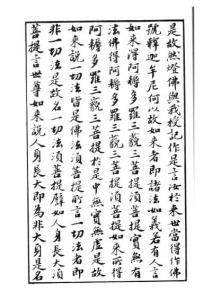 是故然燈佛與我授記作是言汝於來世當得作佛
號釋迦牟尼何以故如來者即諸法如義若有人言
如來得阿耨多羅三藐三菩提須菩提實無有
法佛得阿耨多羅三藐三菩提須菩提如來所得
阿耨多羅三藐三菩提於是中無實無虛是故
如來說一切法皆是佛法須菩提所言一切法者即
非一切法是故名一切法須菩提譬如人身長大須
菩提言世尊如來說人身長大即為非大身是名